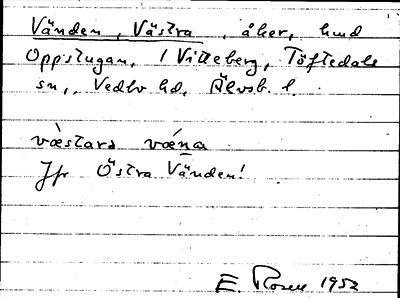 Vänden, Västra, åker, hmd
Oppstugan, 1 Vitteberg, Töftedals
sn., Vedbo hd, Älvsb. l.
væ̀stara vǽna
Jfr Östra Vänden!
E. Rosen 1952